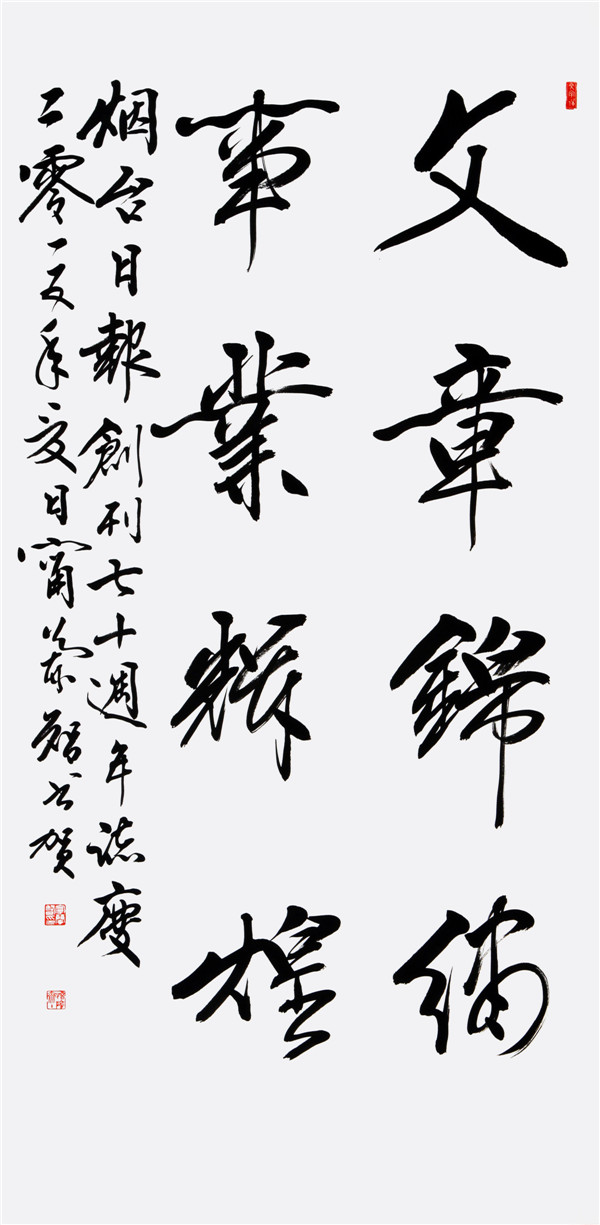 文章錦繡
事業輝煌
烟台日報創刊七十週年誌慶
二零一五年夏日甯智书贺